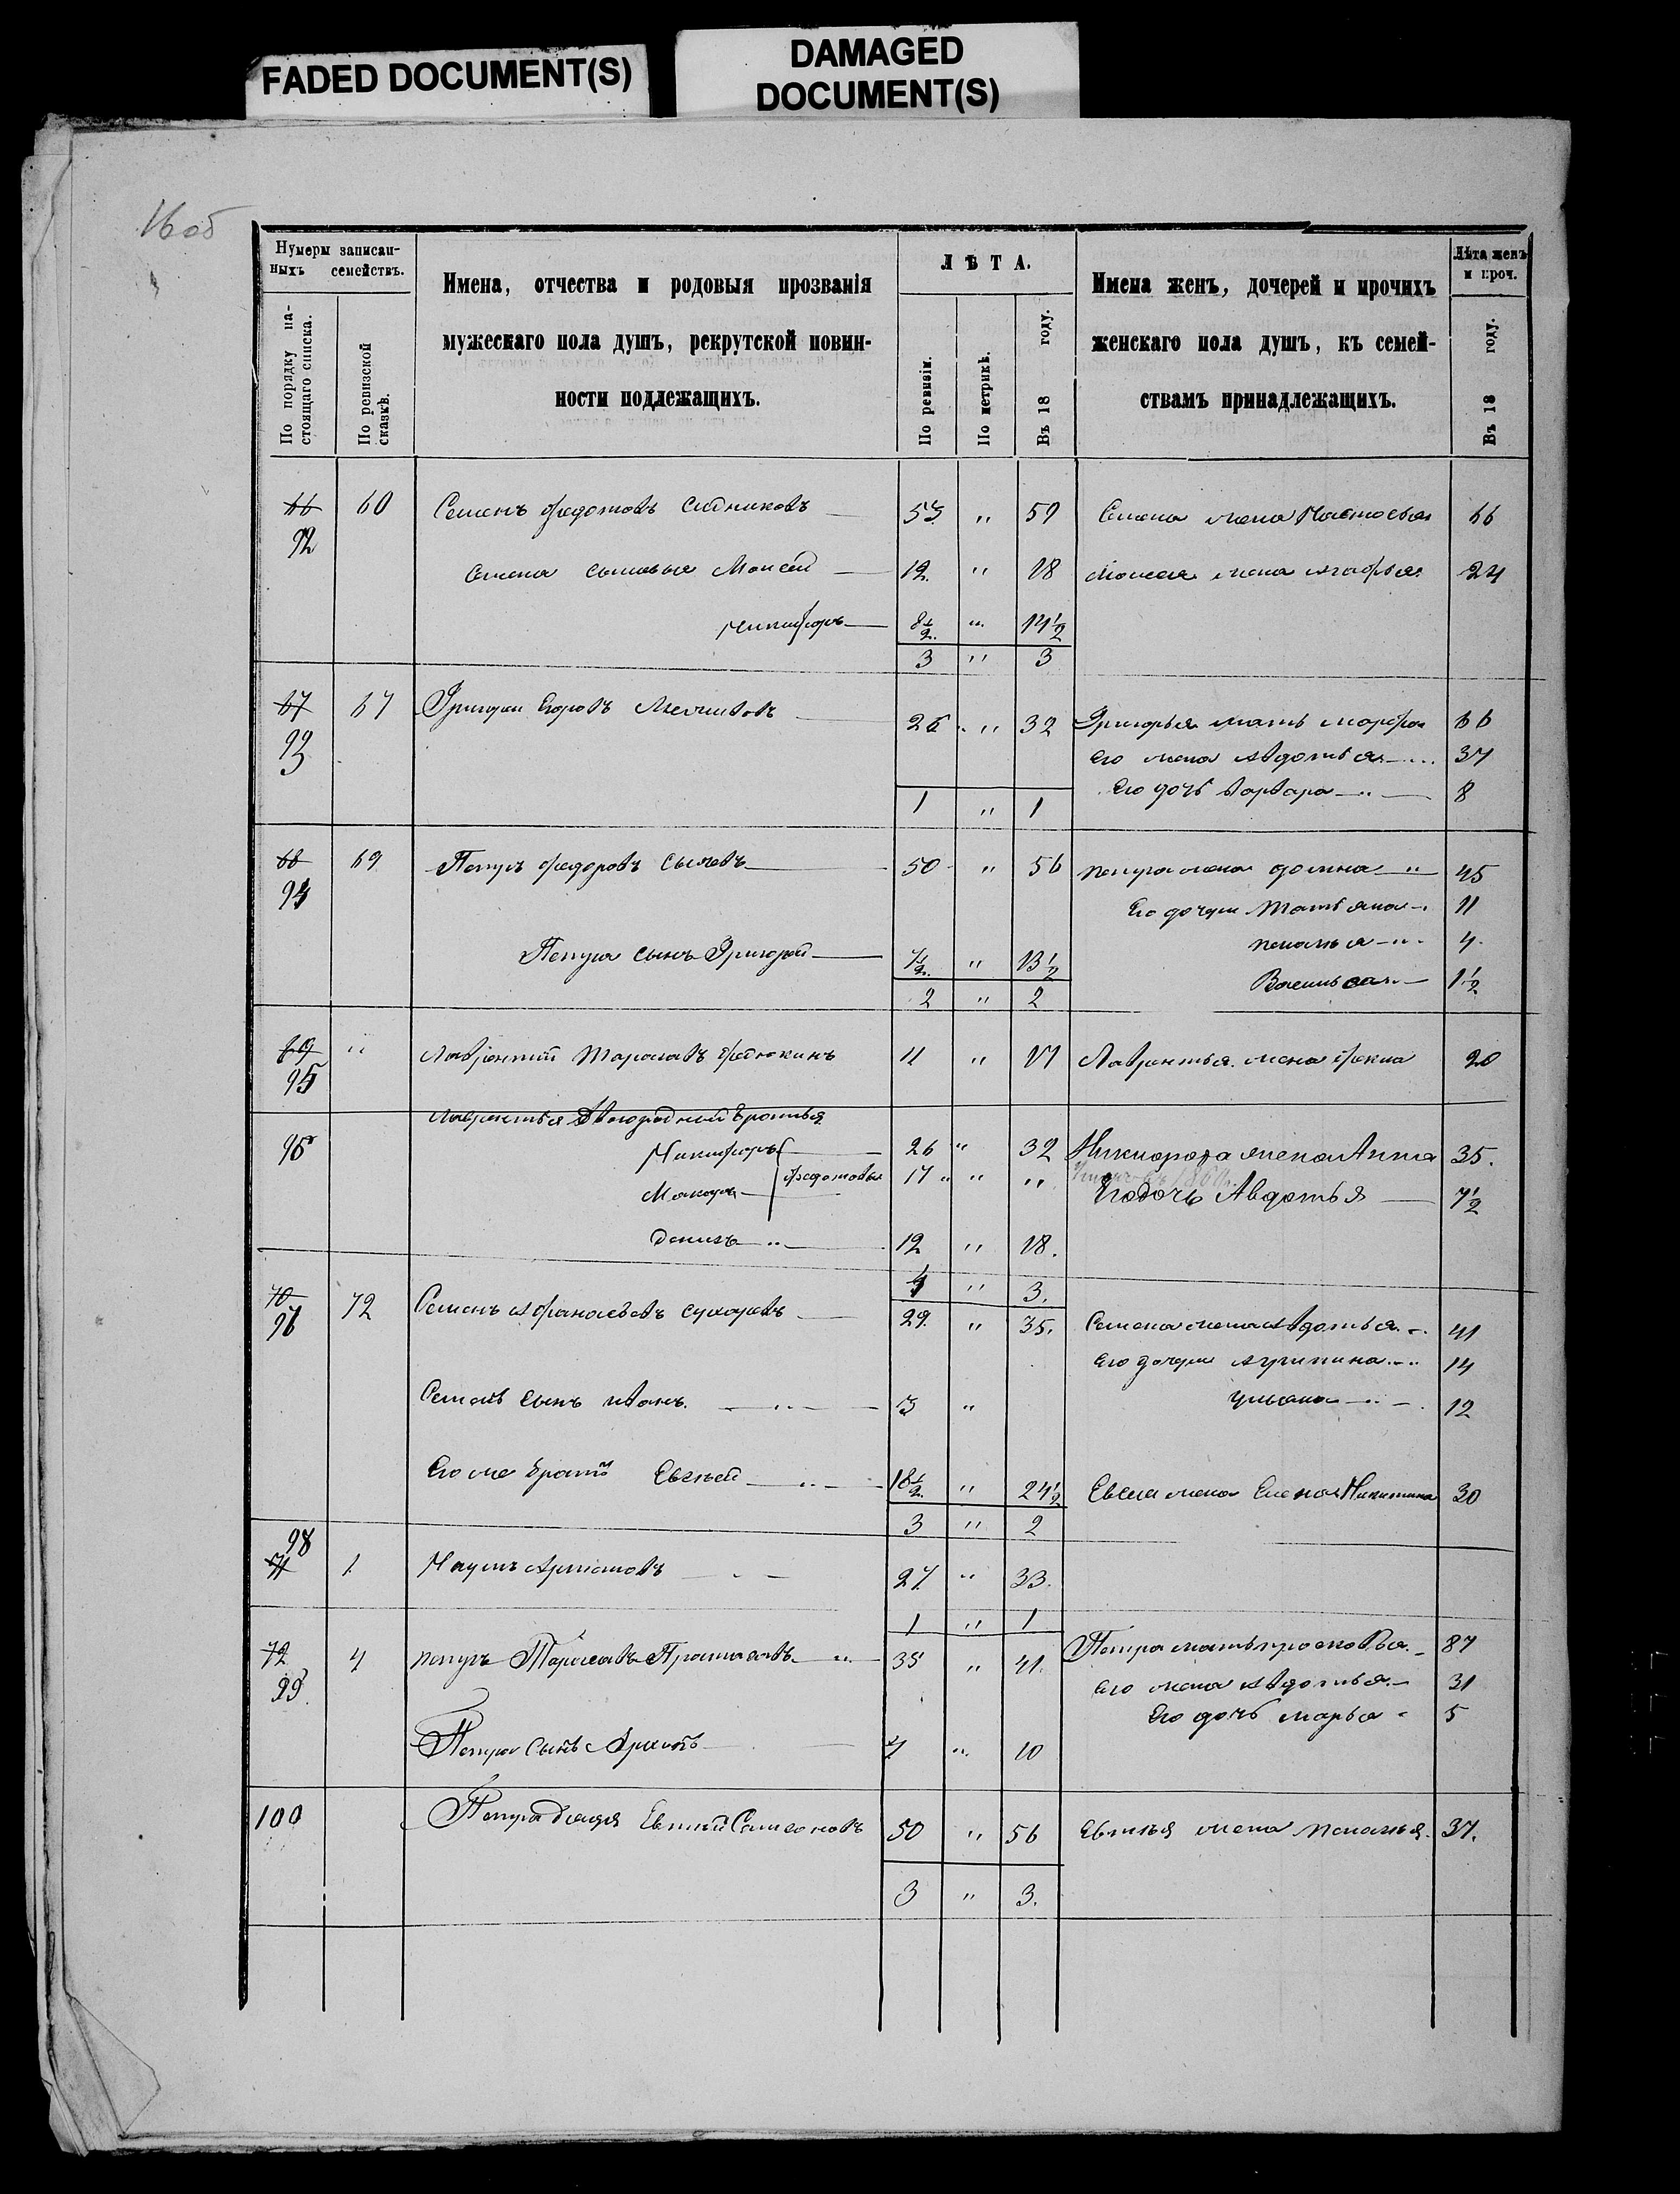 FADED DOCUMENT(S)
DAMAGED
DOCUMENT(S)
16 об
Нумеры записан-
ныхъ семействъ.
По порядку на-
стоящаго списка.
По ревизской
сказкѣ.
Имена, отчества и родовыя прозванія
мужескаго пола душъ, рекрутской повин-
ности подлежащихъ.
ЛѢТА.
По ревизіи.
По метрикѣ.
Въ 18 году.
Имена женъ, дочерей и прочихъ
женскаго пола душъ, къ семей-
ствамъ принадлежащихъ.
Лѣта женъ
и проч.
Въ 18 году.
66 60 Семенъ Федотовъ Сидниковъ 53 " 59 Семена жена Настасья 66
92
Семена сыновья Моисей 12. " 18 Моисея жена Агафья 24
Никифоръ 8½ " 14½
3 " 3
67 67 Григорий Егоровъ 26 " 32 Григорья мать Марфа 66
93 его жена Авдотья 37
Его дочь Варвара 8
1 " 1
68 69 Петръ Федоровъ Сычевъ 50 " 56 Петра жена Домна 45
94 Его дочери Татьяна 11
Пелагея 4
Петра сынъ Григорей 7½ " 13½
Василиса 1½
2 " 2
69 " Лаврентий Тарасовъ Федюкинъ 11 " 17 Лаврентья жена Фекла 20
95
Лаврентья двоюродныи братья
96 Никифоръ 26 " 32 Никифора жена Анна 35.
Макаръ Федотовы 17 " "
Его дочь Авдотья 7½
Денисъ 12 " 18.
4 " 3.
70 72 Семенъ Афанасьевъ Сухоревъ 29. " 35. Семена жена Авдотья 41
97 Его дочери Агрипина 14
Семена сынъ Иванъ. 3 " Ульяна 12
Его же братъ Евсѣй 18½ " 24½ Евсея жена Елена Никитина 30
3 " 2
98
71 1 Наумъ Артамовъ 27 " 33.
1 " 1
72 4 Петръ Тарасовъ 35 " 41. Петра мать Прасковья 87
99. Его жена Авдотья 31
Его дочь Марья 5
Петра сынъ Архипъ 4 " 10
100 Петра дядя Евтей Самсоновъ 50 " 56 Евтея жена Пелагея 37.
3 " 3.